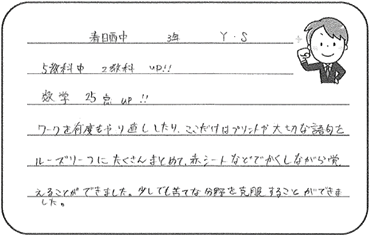 春日西中 3年 Y・S
5教科中 2教科 UP!!
数学 25点 UP!!
ワークを何度もやり直ししたり、ここだけはプリントや大切な語句を
ルーズリーフにたくさんまとめて、赤シートなどでかくしながら覚
えることができました。少しでも苦手な分野を克服することができま
した。